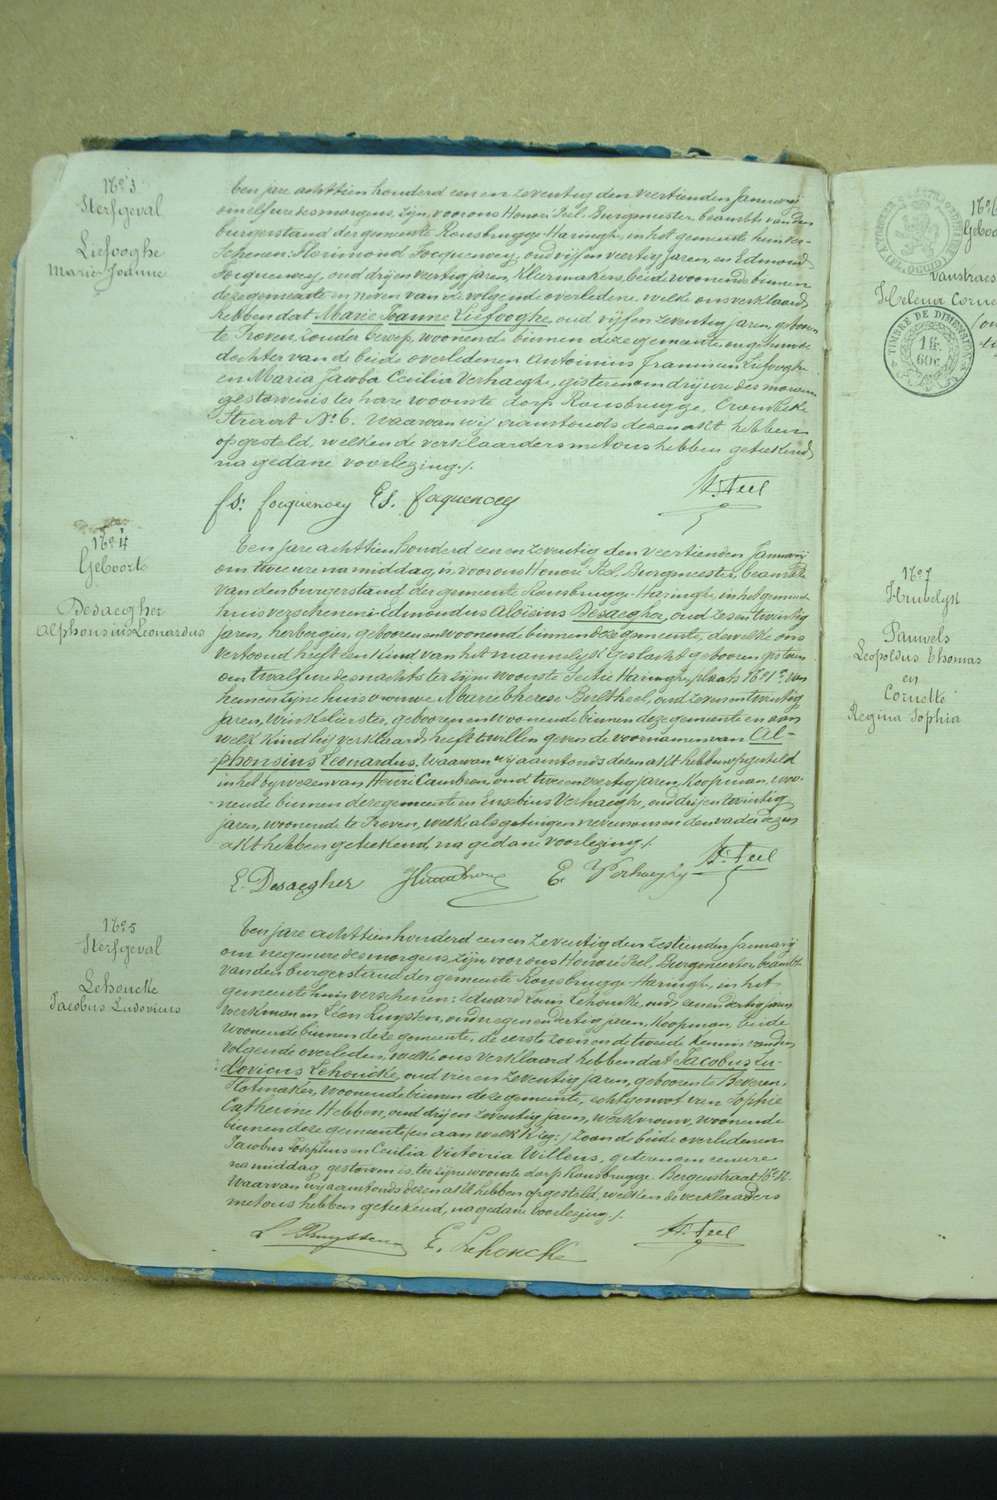 No 3
Sterfgeval
Liefooghe
Marie Jeanne
Ten jare achttien honderd een en zeventig den veertienden Januarij
om elf ure des morgens, zijn, voor ons Honoré Peel, Burgmeester, beambte van den
burgerstand der gemeente Rousbrugge-Haringhe, in het gemeente huis ver-
schenen: Florimond Focquenoey, oud vijf en veertig jaren, en Edmond
Focquenoey, oud drij en veertig jaren, Kleermakers, beide woonende binnen
deze gemeente en neven van de volgende overledene welke ons verklaard
hebben dat Marie Jeanne Liefooghe, oud vijf en zeventig jaren, geboren
te Proven, zonder beroep, woonende binnen deze gemeente, ongehuwde
dochter van de beide overledenen Antoinius Franciscus Liefooghe
en Maria Jacoba Cecilia Verhaeghe, gisteren om drij ure des morgens
gestorven is ter hare woonste dorp Rousbrugge, Crombeke
Straat No 6. Waarvan wij aanstonds dezen akt hebben
opgesteld, welken de verklaarders met ons hebben geteekend,
na gedane voorlezing./.
fs. focquenoey Es. focquenoey
H. Peel
No 4
Geboorte
Desaegher
Alphonsius Leonardus
Ten jare achttien honderd een en zeventig den veertienden Januarij
om twee ure namiddag, is, voor ons Honoré Peel, Burgmeester, beambte
van den burgerstand der gemeente Rousbrugge-Haringhe, in het gemeente
huis verschenen: Edmondus Aloïsius Desaegher, oud zes en twintig
jaren, herbergier, geboren en woonende binnen deze gemeente, dewelke ons
vertoond heeft een kind van het mannelijk geslacht geboren gisteren
om twaalf ure des nachts ter zijne woonste Sectie Haringhe, plaats No 1, van
hem en zijne huisvrouwe Marie therese Bertheel, oud zeven en twintig
jaren, Winkelierster, geboren en woonende binnen deze gemeente en aan
welk kind hij verklaard heeft te willen geven de voornamen van Al-
phonsius Leonardus. Waarvan wij aanstonds dezen akt hebben opgesteld
in het bijwezen van Henri Cambron, oud twee en veertig jaren, Koopman, woo-
nende binnen deze gemeente en Eusebius Verhaeghe, oud drij en twintig
jaren, woonende te Proven, welke als getuigen nevens ons en den vader dezen
akt hebben geteekend, na gedane voorlezing./.
E. Desaegher
E. Verhaeghe
H. Peel
No 5
Sterfgeval
Lehoucke
Jacobus Ludovicus
Ten jare achttien honderd een en zeventig den zestienden Januarij
om negen ure des morgens, zijn, voor ons Honoré Peel, Burgmeester, beambte
van den burgerstand der gemeente Rousbrugge-Haringhe, in het
gemeente huis verschenen: Eduard Louis Lehoucke, oud een en dertig jaren,
werkman en Léon Ruyssen, oud negen en dertig jaren, Koopman, beide
woonende binnen deze gemeente, de eerste zoon en de tweede kennis van den
volgende overleden, welke ons verklaard hebben dat Jacobus Lu-
dovicus Lehoucke, oud vier en zeventig jaren, geboren te Beveren,
Slotmaker, woonende binnen deze gemeente, echtgenoot van Sophie
Catherine Hebben, oud drij en zeventig jaren, werkvrouw, woonende
binnen deze gemeente, zoon de beide overledenen
Jacobus Josephus en Cecilia Victoria Willens, gisteren om een ure
namiddag gestorven is, ter zijne woonste dorp Rousbrugge, Bergenstraat
Waarvan wij aanstonds dezen akt hebben opgesteld, welken de verklaarders
met ons hebben geteekend, na gedane voorlezing./.
L. Ruyssen
E. Lehoucke
H. Peel
No 6
vanstraes
Helena Corne
TIMBRE DE DIMENSION
1 fr.
60c.
No 7
Huwelijk
Pauwels
Leopoldus Thomas
en
Cornette
Regina Sophia